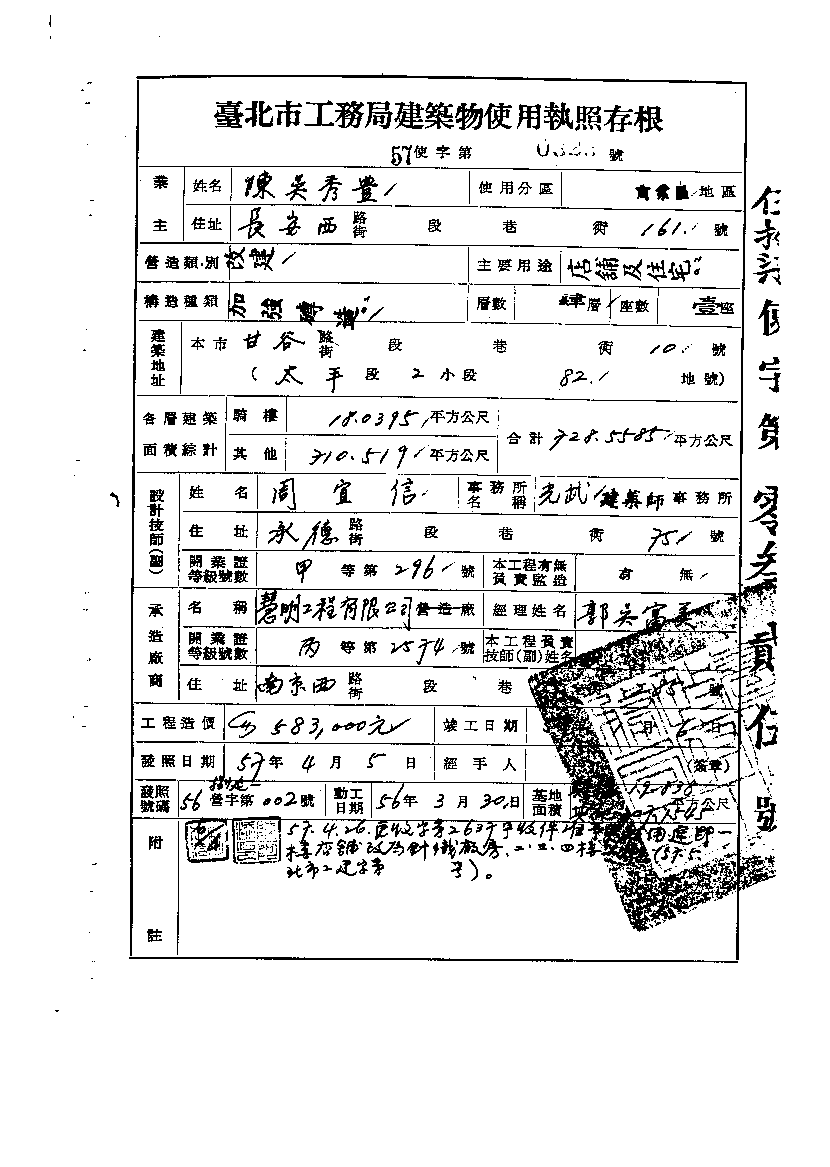 臺北市工務局建築物使用執照存根
57使字第 號
業主 姓名 陳吳秀豊 使用分區 商業區地區
住址 長安西 路街 段 巷 衖 161 號
營造類別 改建 主要用途 店舖及住宅
構造種類 加強磚造 層數 肆層 座數 壹座
建築地址 本市 甘谷 路街 段 巷 衖 10 號
(太平段 2 小段 82 地號)
各層建築面積綜計 騎樓 18.0395 平方公尺 合計 728.5585 平方公尺
其他 710.519 平方公尺
設計技師(副) 姓名 周宜信 事務所名稱 光武建築師事務所
住址 承德 路街 段 巷 衖 75 號
開業證等級號數 甲等第 296 號 本工程有無負責監造 有 無
承造廠商 名稱 慧明工程有限公司 營造廠 經理姓名 郭吳富美
開業證等級號數 丙等第 號 本工程負責技師(副)姓名
住址 南京西 路街 段 巷 號
工程造價 583,000元 竣工日期 月 6 日
發照日期 57年4月5日 經手人 (簽章)
發照號碼 56 營字第002號 動工日期 56年3月30日 基地面積 平方公尺
附註
57.4.26.
北市工建字第 號)。
使字第零叁貳伍號